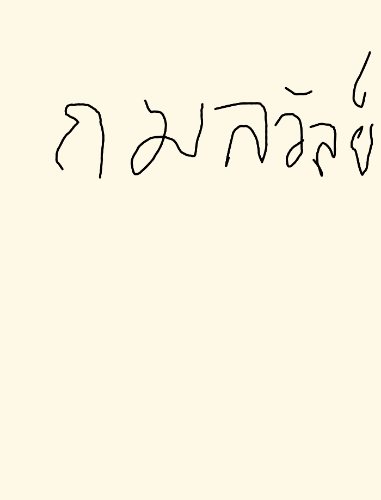 กมลวัลย์